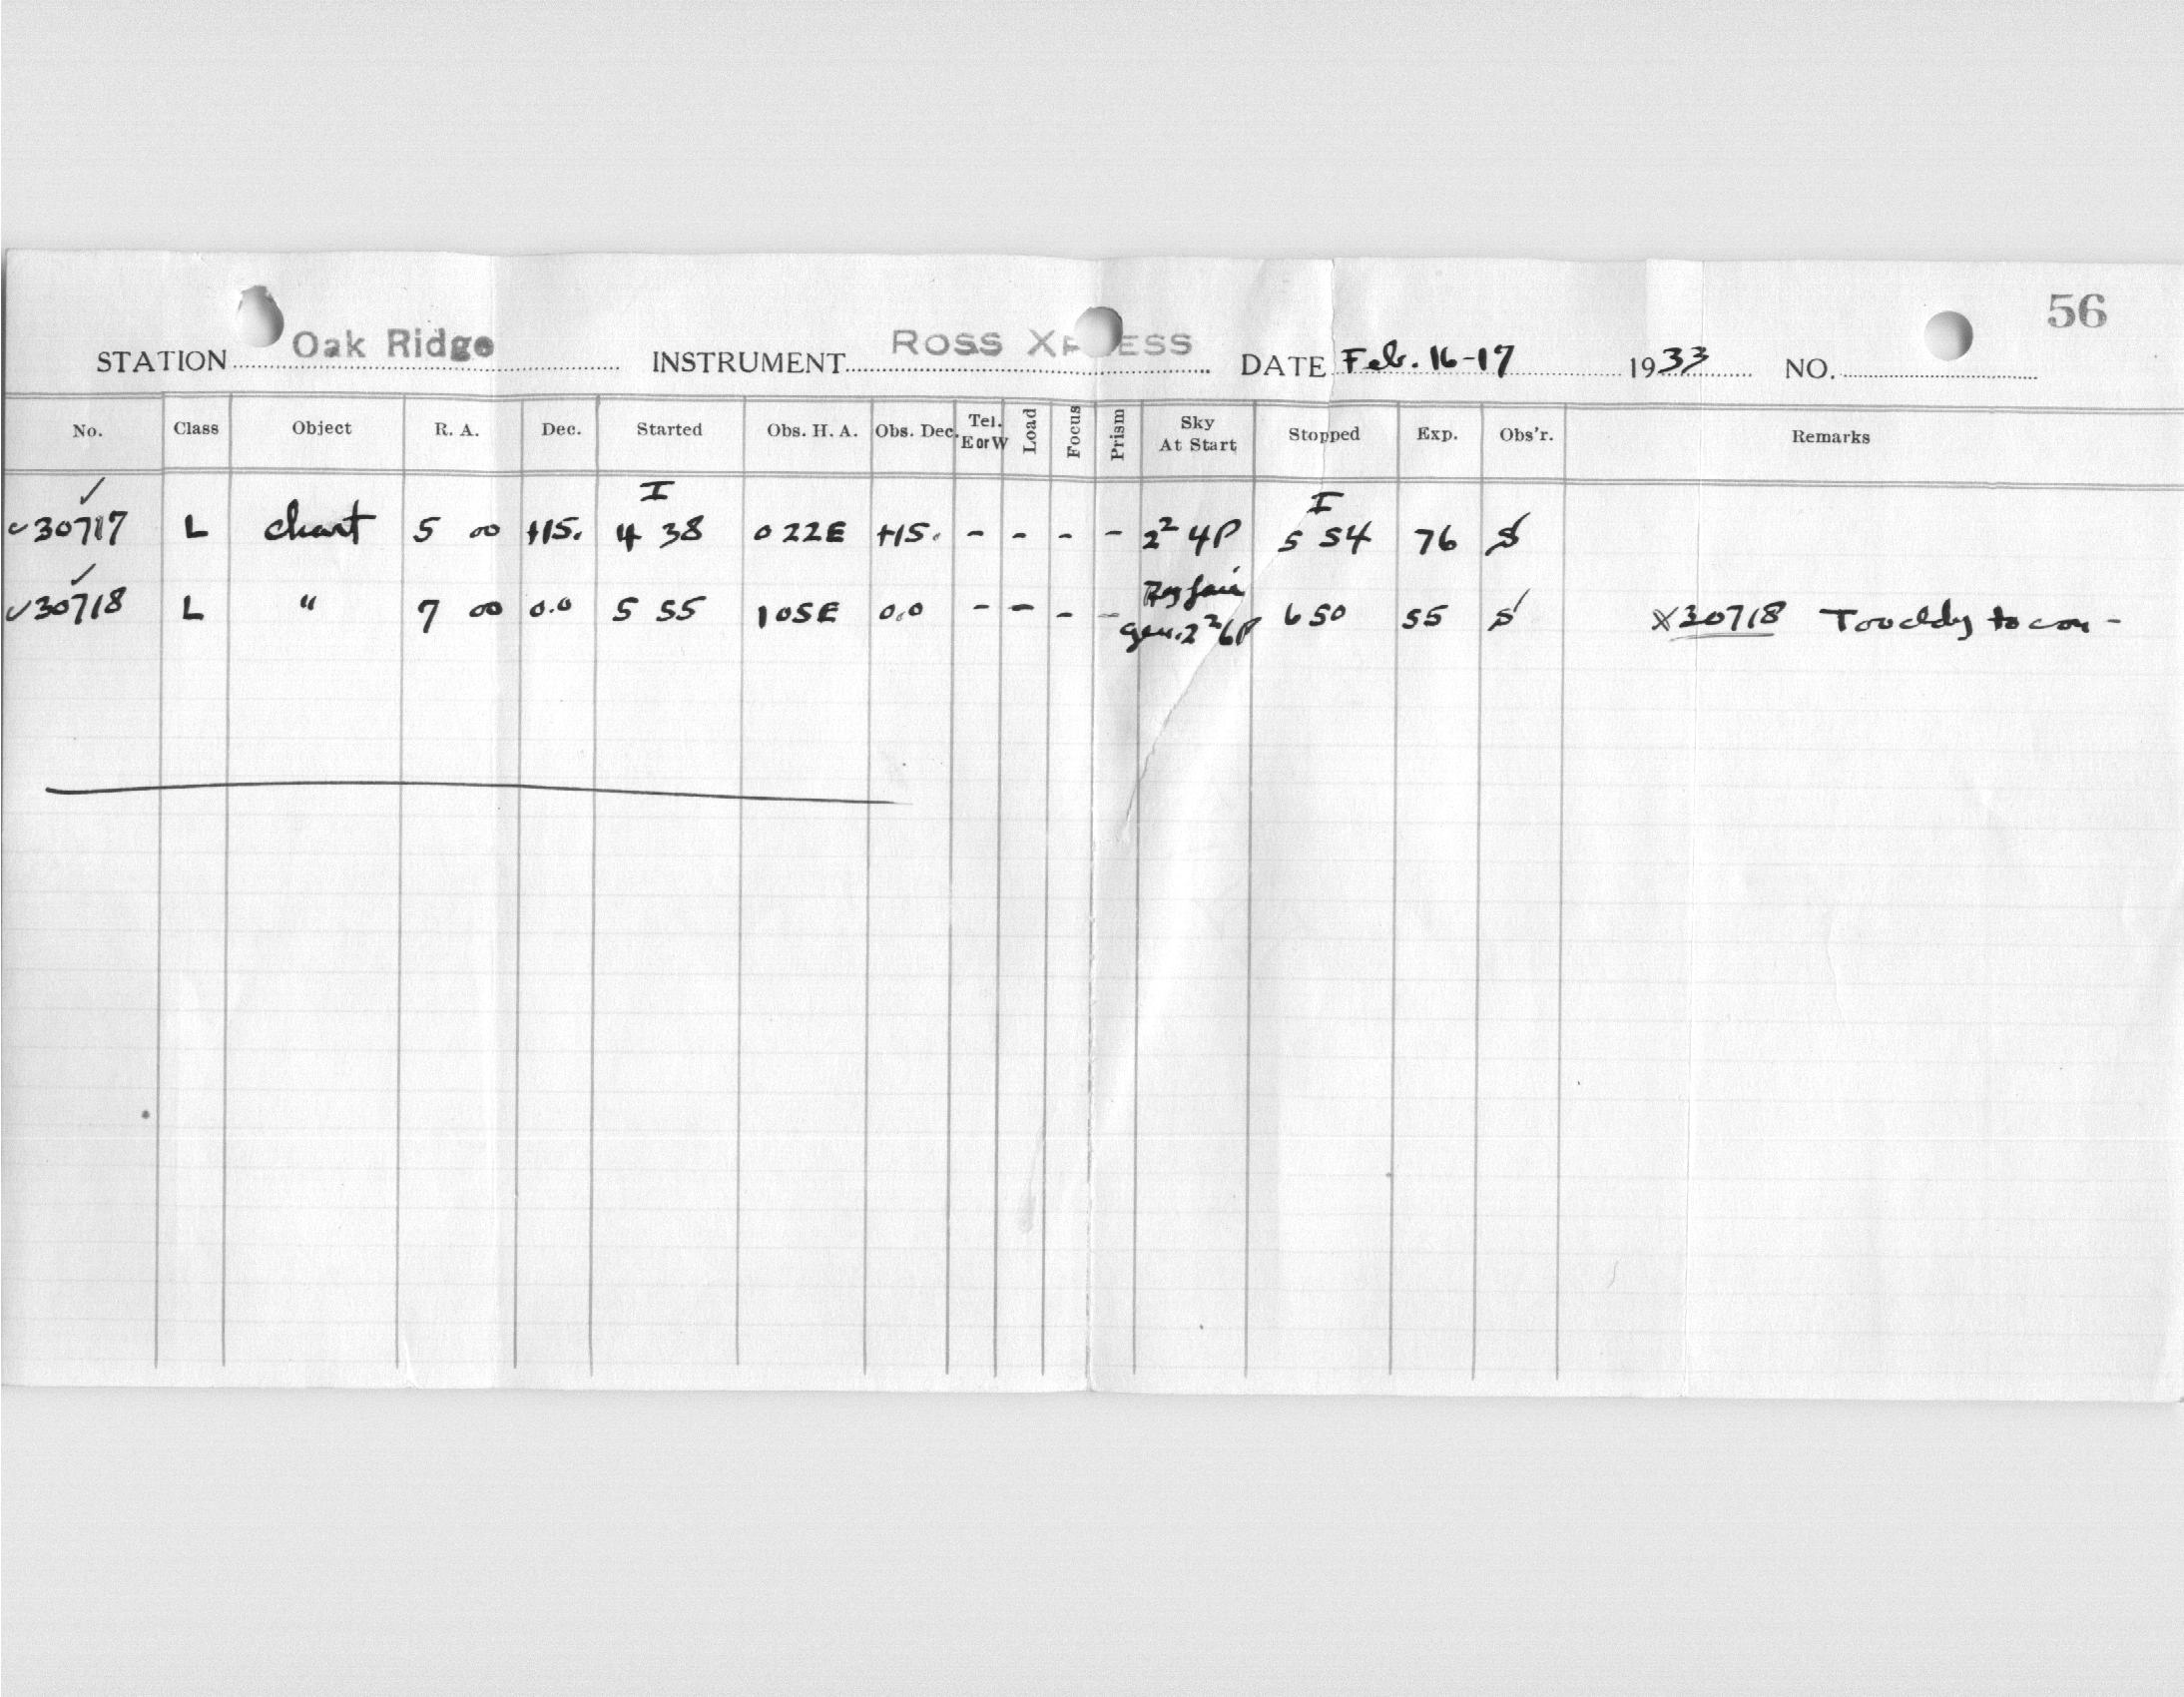 56
STATION Oak Ridge INSTRUMENT ROSS XPRESS DATE Feb. 16-17 1933 NO.
No. Class Object R. A. Dec. Started Obs. H. A. Obs. Dec. Tel. E or W Load Focus Prism Sky At Start Stopped Exp. Obs'r. Remarks
I I
✓30717 L chart 5 00 +15. 4 38 0 22E +15. - - - - 2² 4P 5 54 76 S
✓30718 L " 7 00 0.0 5 55 1 05E 0.0 - - - - fair 2² 6P 6 50 55 S X30718 to con -